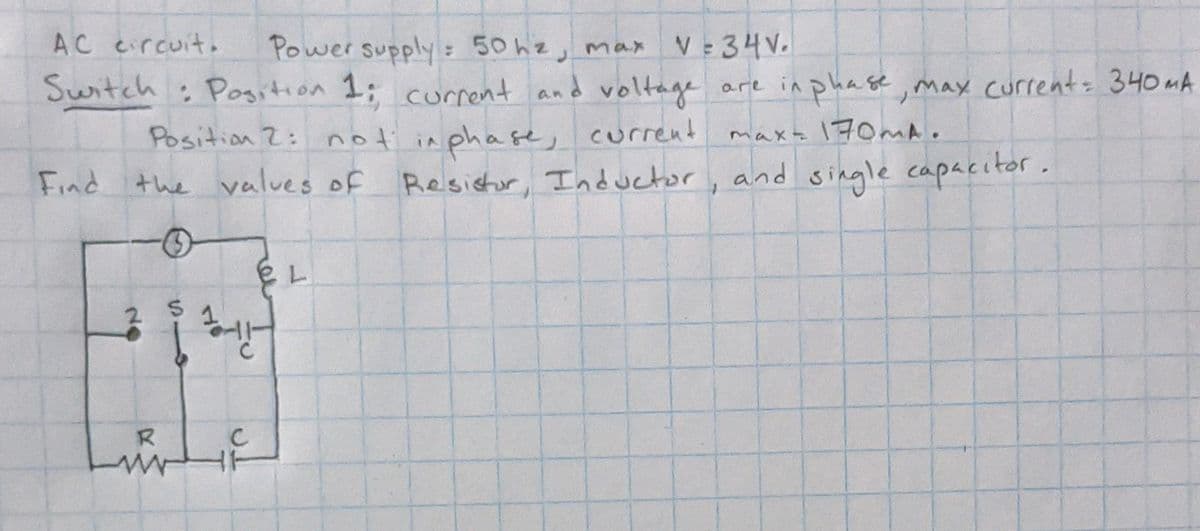 AC circuit. Power supply: 50hz, max V = 34V.
Switch : Position 1; current and voltage are in phase, max current = 340mA
Position 2: not in phase, current max = 170mA.
Find the values of Resistor, Inductor, and single capacitor.
L
2 S 1
C
R C